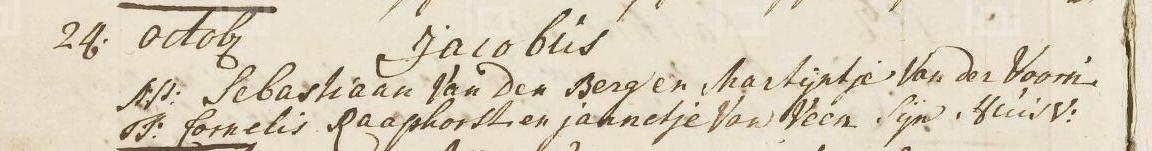 24. octob Jacobus
PP: Sebastiaan Van den Berg en Martijntje Van der Voorn
TT: Cornelis Raaphorst en jannetje Van Veen Sijn Huisv: